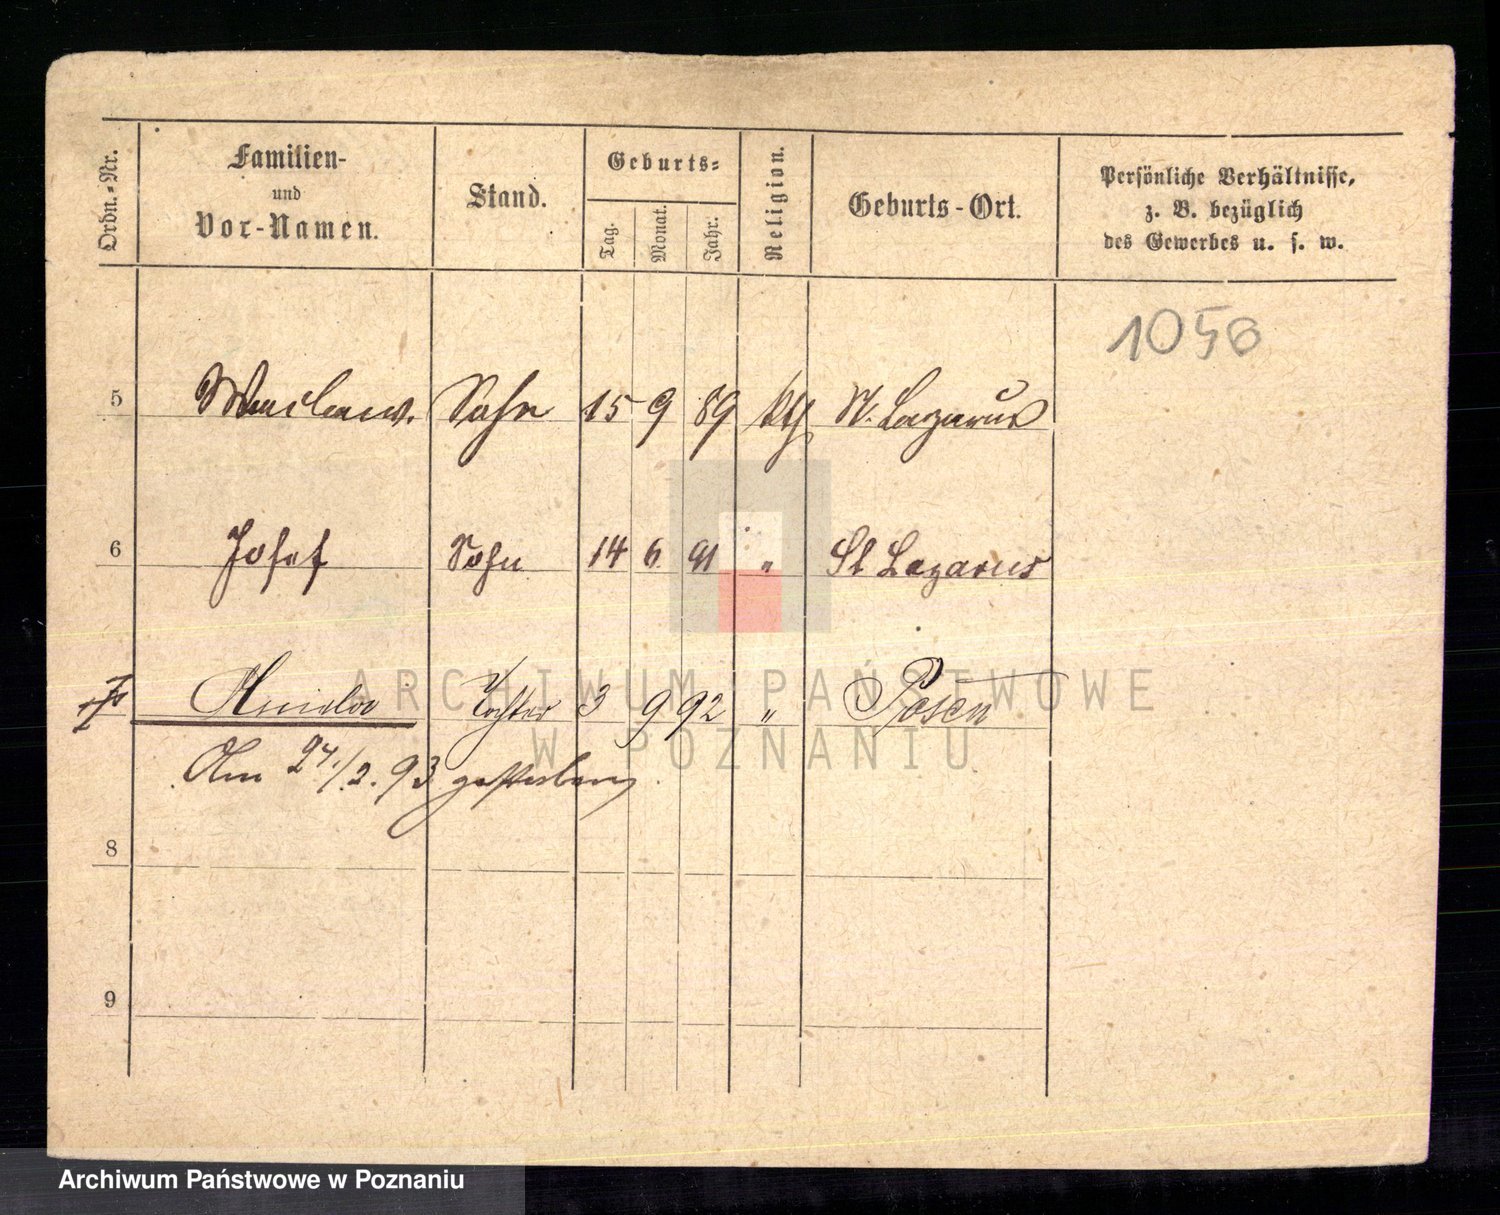 Ordn.-Nr.
Familien-
und
Vor-Namen.
Stand.
Geburts-
Tag.
Monat.
Jahr.
Religion.
Geburts-Ort.
Persönliche Verhältnisse,
z. B. bezüglich
des Gewerbes u. s. w.
1050
5 Waclaw. Sohn 15 9 89 kth St. Lazarus
6 Josef Sohn 14 6 91 " St Lazarus
7 Tochter 3 9 92 " Posen
Am 24./2. 93 gestorben.
8
9
ARCHIWUM PAŃSTWOWE
W POZNANIU
Archiwum Państwowe w Poznaniu